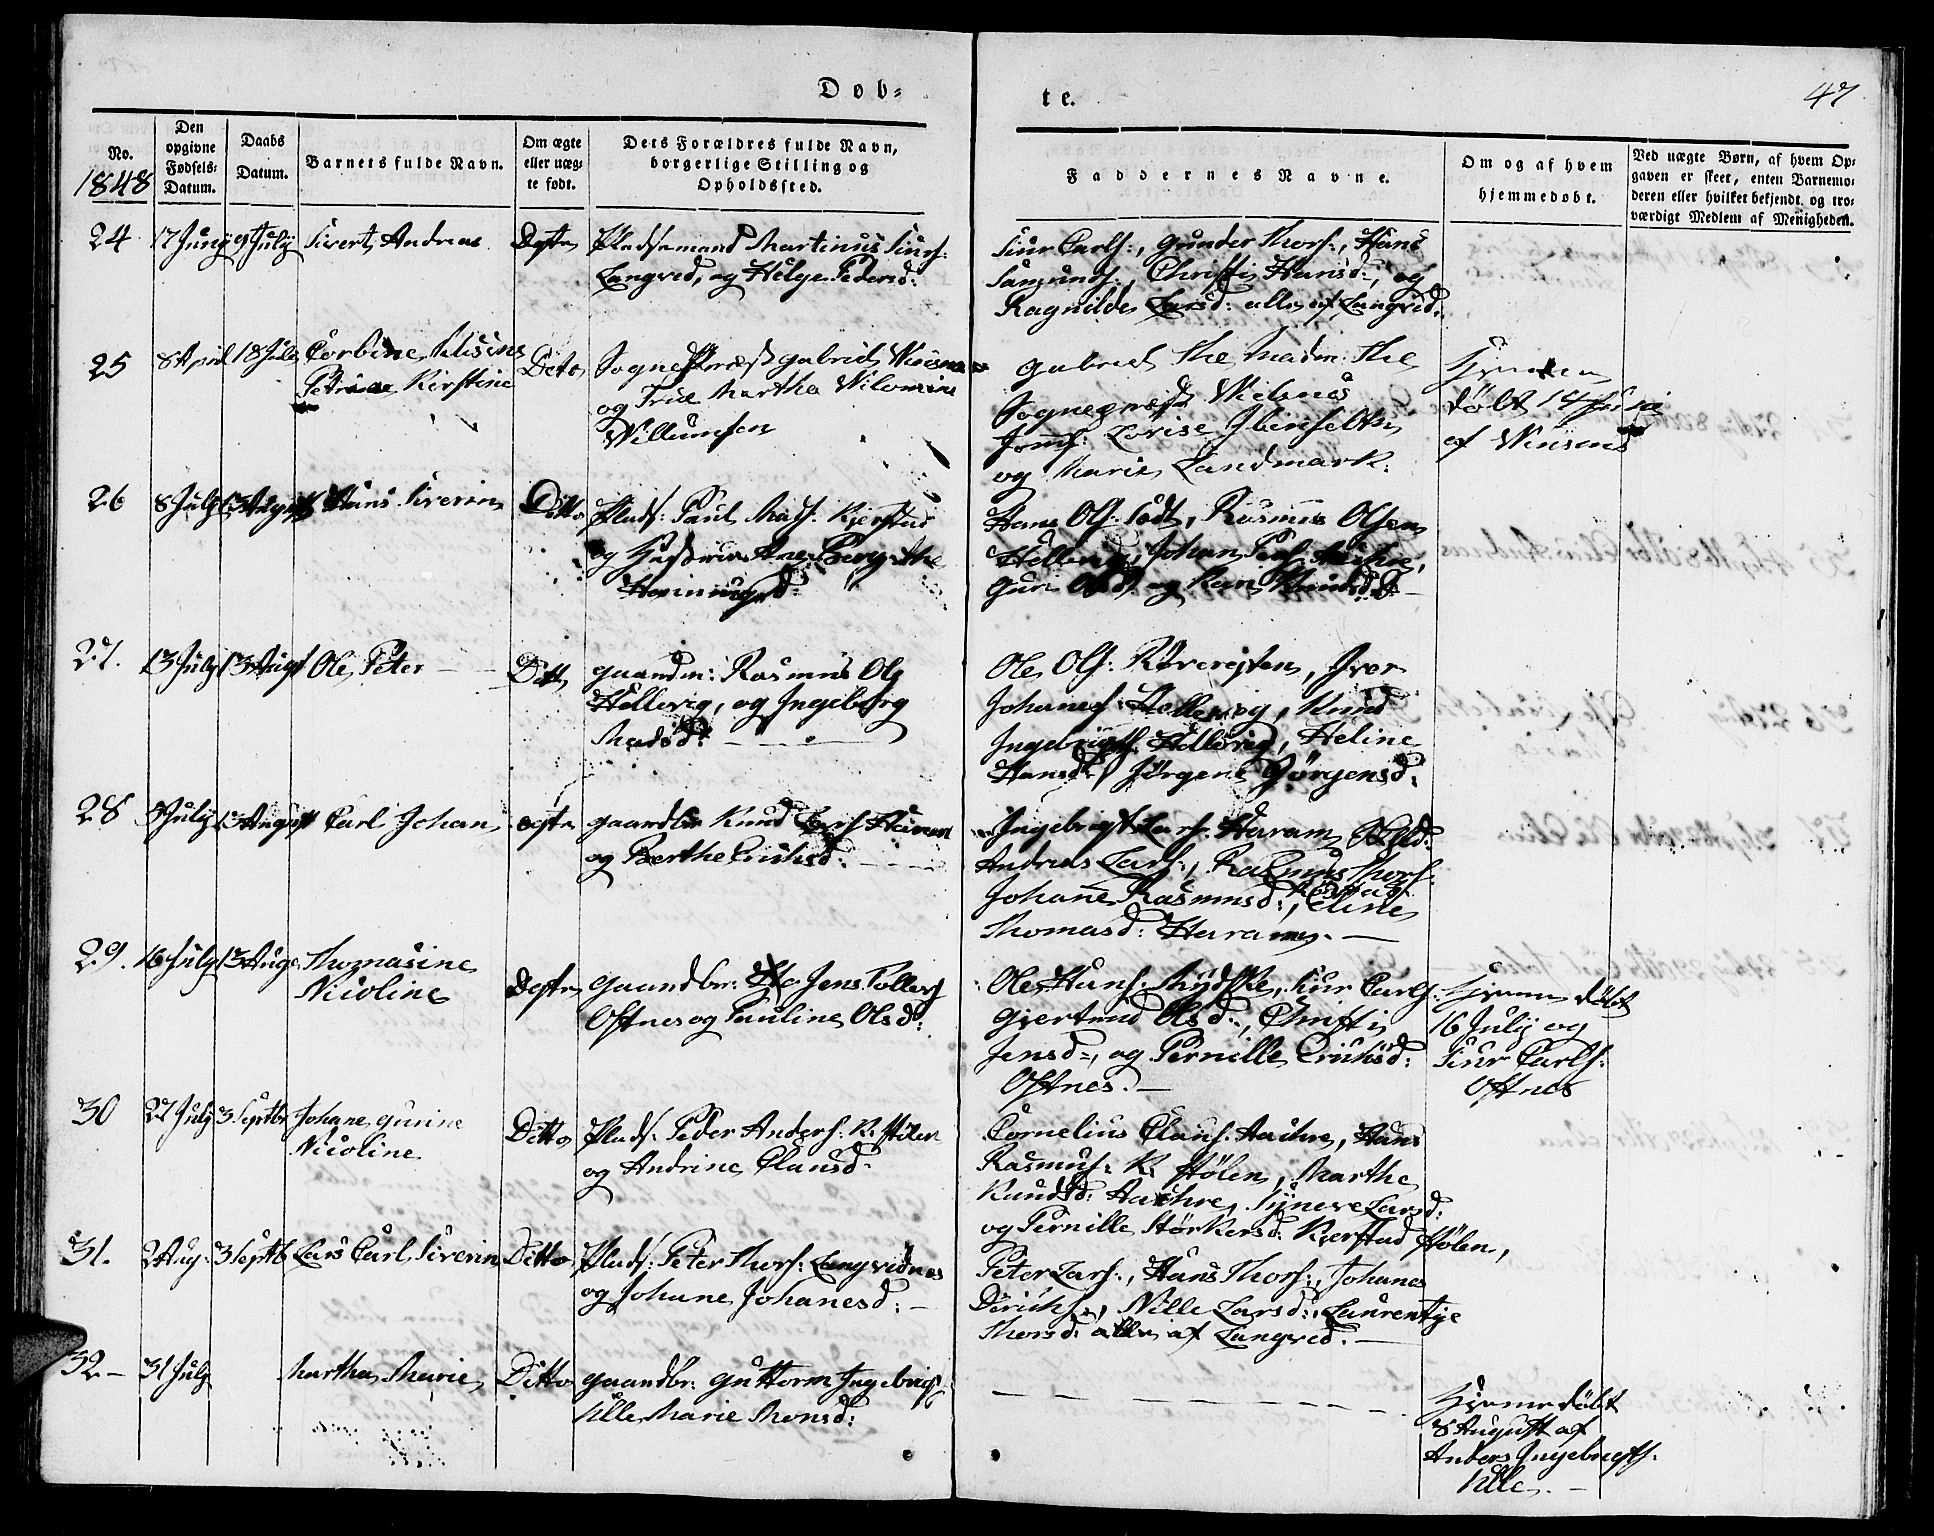 Døb=
te.
47
No.
1848
Den opgivne Fødsels-Datum.
Daabs Datum.
Barnets fulde Navn.
Om ægte eller uægte født.
Dets Forældres fulde Navn, borgerlige Stilling og Opholdssted.
Faddernes Navne.
Om og af hvem hjemmedøbt.
Ved uægte Børn, af hvem Opgaven er skeet, enten Barnemoderen eller hvilket bekjendt og troværdigt Medlem af Menigheden.
24 17 Juny 9 July Sivert Andreas
Pladsemand Martinus Siurs:
Langved, og Helge Pedersd:
Siur Carls:, Gunder Thors:, Hans
Christi Hansd:, og
Ragnilde Larsd: alle af Langved.
25 8 April 18 July
Petrine Kirstine
Ditto
og Frue Martha
Willumsen
Gabriel The Madm: The
Jomf: Lovise
og Marie Landmark.
døbt 14
af
26 8 July 13 August Hans Siverin
Ditto
Plads: Paul Mats: Kjerstad
og Hustrue Ane Berg. the
Hans Ols: Rasmus Olsen
Hellevig, Johan Peds: Aachre,
Guri Olsd: og Karn Knudsd:
27. 13 July 13 Augst Ole Peter
Ditto
Gaardm: Rasmus Ols
Hellevig, og Ingeborg
Madsd:
Ole Ols: Iver
Johanes: Hellevig, Knud
Ingebrigts: Hellevig, Heline
Hansd: Jørgene Jørgensd:
28 July 13 August Carl Johan
Gaardbr Knud Lars: Haram
og Berthe Erichsd:
Ingebrigt Lars: Haram,
Andreas Lars:, Rasmus Thors:
Johanne Rasmusd:, Eline
Thomasd: Haram.
29. 16 July 13 Aug: Thomasine
Nicoline
Gaardbr: Jens
Ostnes og Pauline Olsd:
Ole Hans: Siur Carls:
Giertrud Olsd:, Christi
Jensd:, og Pernille Erichsd:
Ostnes.
Hjemme døbt
16 July og
Siur Carls:
Ostnes
30 27 July 3 Septbr Johane Gurine
Nicoline
Ditto
Plads: Peder Anders: K. stølen
og Andrine Clausd:
Cornelius Claus: Aachre, Hans
Rasmus: K. stølen, Marthe
Knudsd: Aachre, Syneve Larsd:
og Pernille Størkersd: Kjerstad stølen,
31. 2 Aug: 3 Septb Lars Carl Siverin
Ditto
Plads: Peter Thors: Langvednes
og Johane Johanesd:
Peter Lars:, Hans Thors:, Johanes
Dirichs:, Nille Larsd:, Laurentze
Thorsd: alle af Langved.
32 31 July Martha Marie
Ditto
Gaardbr: Guttorm Ingebrigs:
Ulle, Marie Monsd:
Hjemme døbt
8 August af
Anders Ingebrigts:
Ulle.